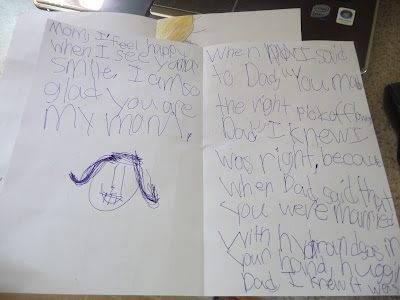 Mom, I feel happy
when I see your
smile. I am so
glad you are
my mom.
When I said
to Dad, "You made
the right pick off
Dad I knew I
was right, because
when Dad said that
you were married
with hydrangas in
your hand, huggin
Dad I knew it was